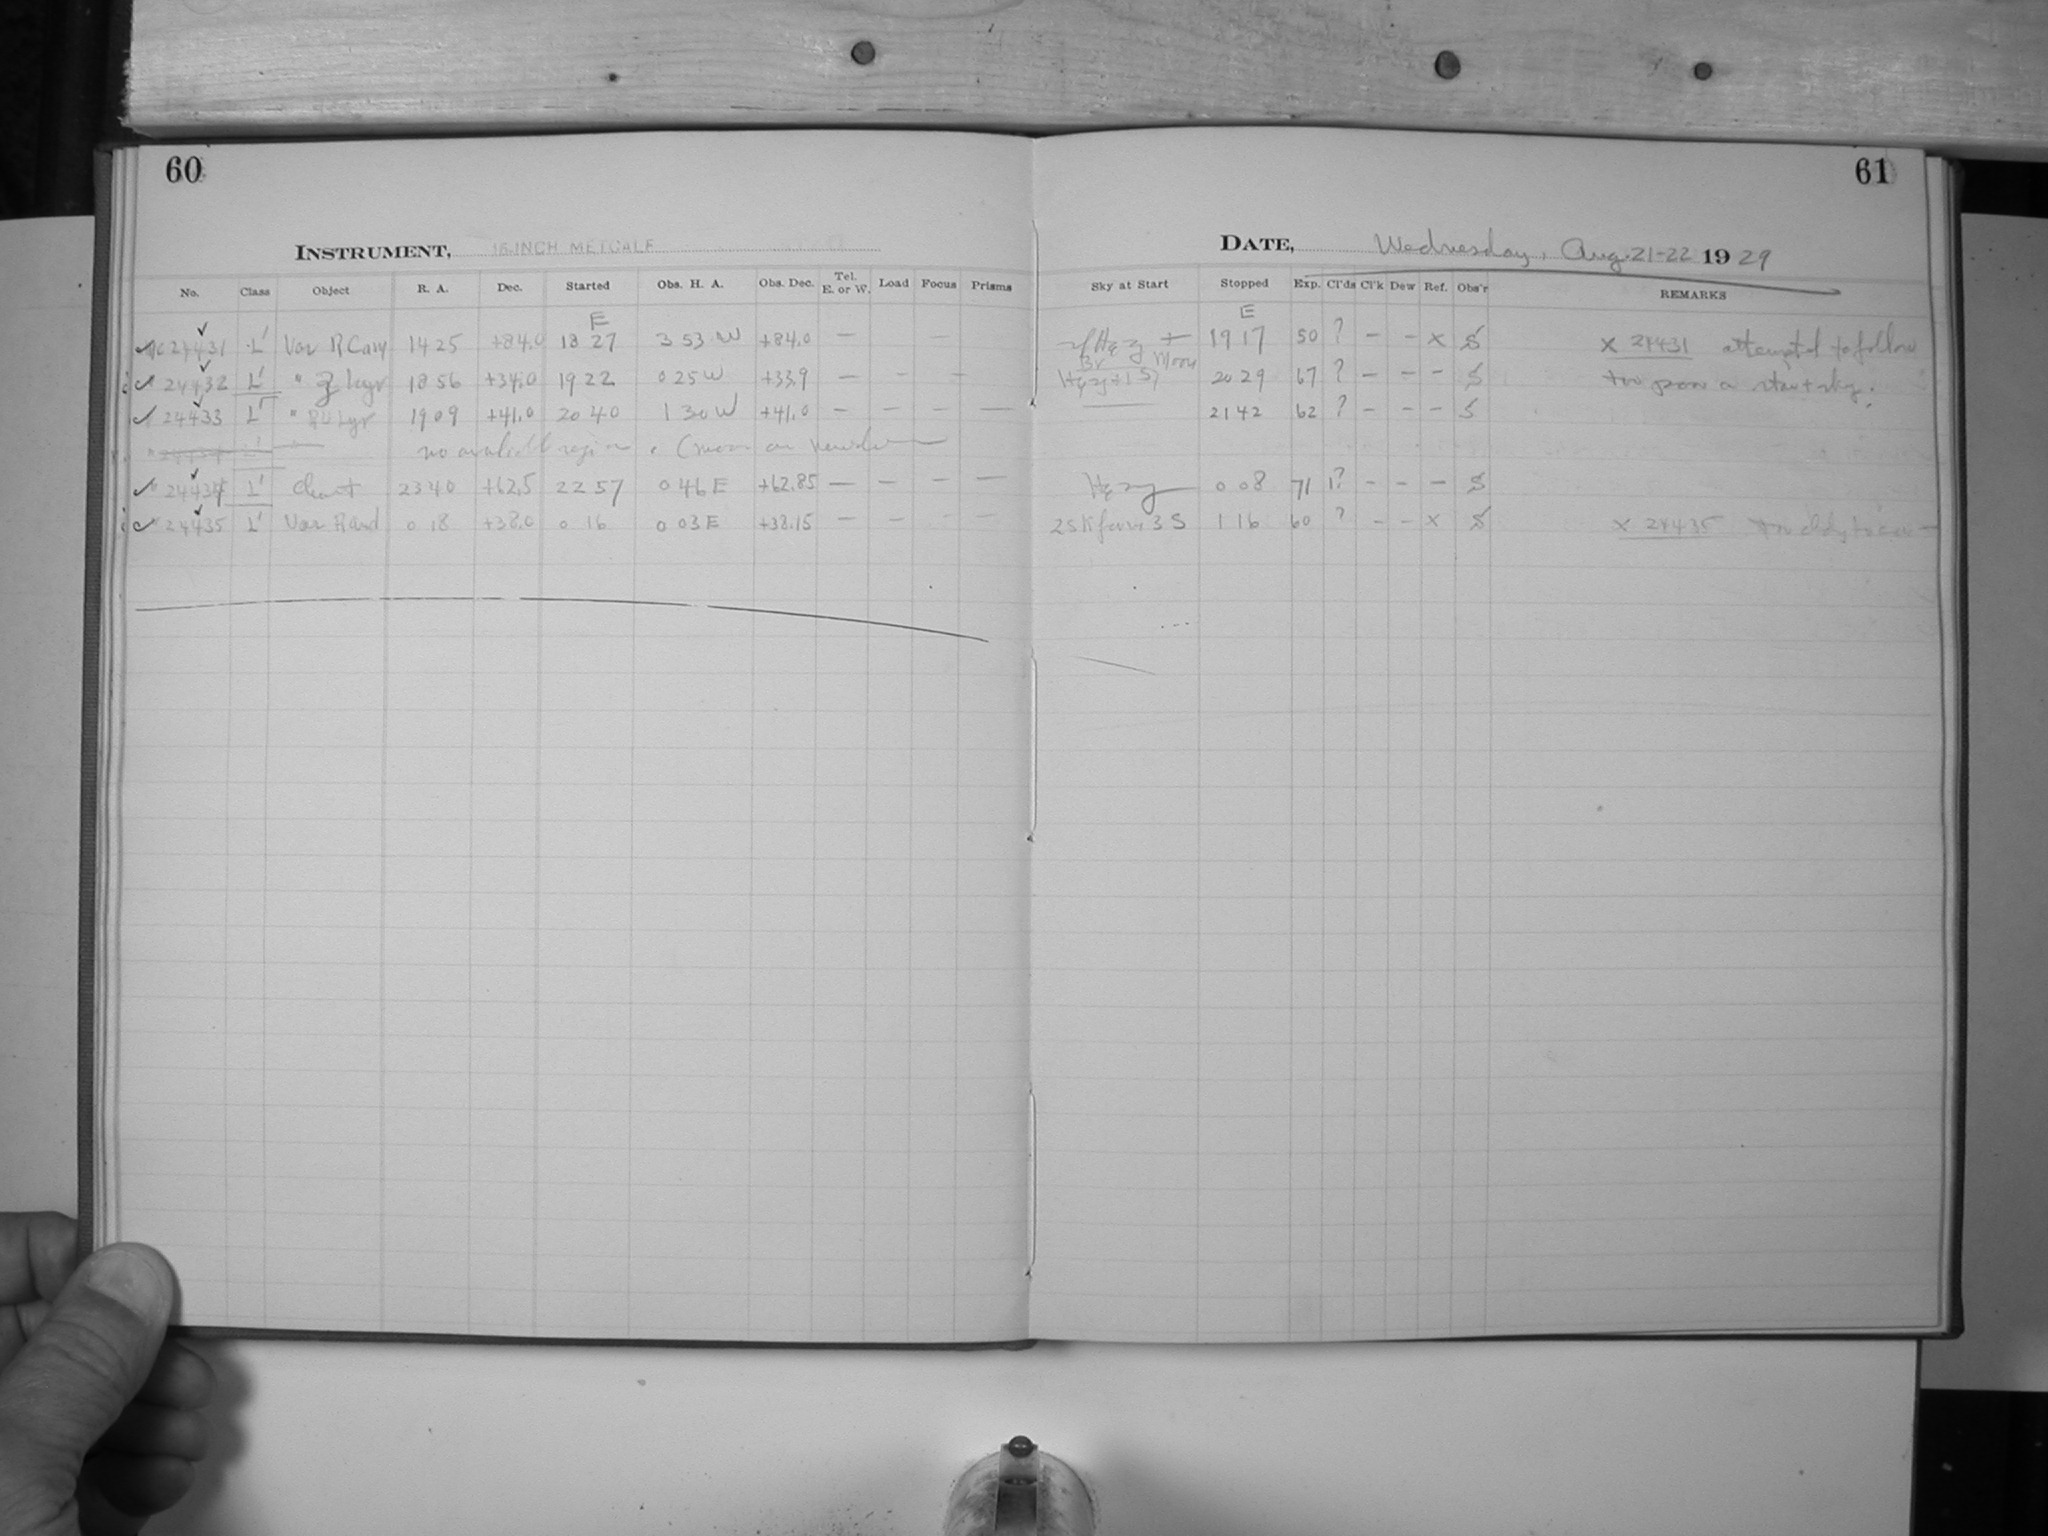 60
INSTRUMENT, 16-INCH METCALF
No. Class Object R. A. Dec. Started Obs. H. A. Obs. Dec. Tel. E. or W. Load Focus Prisms
E
24431 L' Var R Cam 14 25 +84.0 18 27 3 53 W +84.0 — —
24432 L' " Lyr 18 56 +34.0 19 22 0 25 W +33.9 — — — —
24433 L' " RU Lyr 19 09 +41.0 20 40 1 30 W +41.0 — — — —
no available region . (moon on
24434 L' Chart 23 40 +62.5 22 57 0 46 E +62.85 — — — —
24435 L' Var R And 0 18 +38.0 0 16 0 03 E +38.15 — — — —
61
DATE, Wednesday, Aug. 21-22 1929
Sky at Start Stopped Exp. Cl'ds Cl'k Dew Ref. Obs'r REMARKS
E
Hazy + 19 17 50 ? — — x S x 24431 attempted to follow
Br Moon
Hazy 20 29 67 ? — — — S too poor a start sky.
21 42 62 ? — — — S
Hazy 0 08 71 1? — — — S
3 S 1 16 60 ? — — x S x 24435